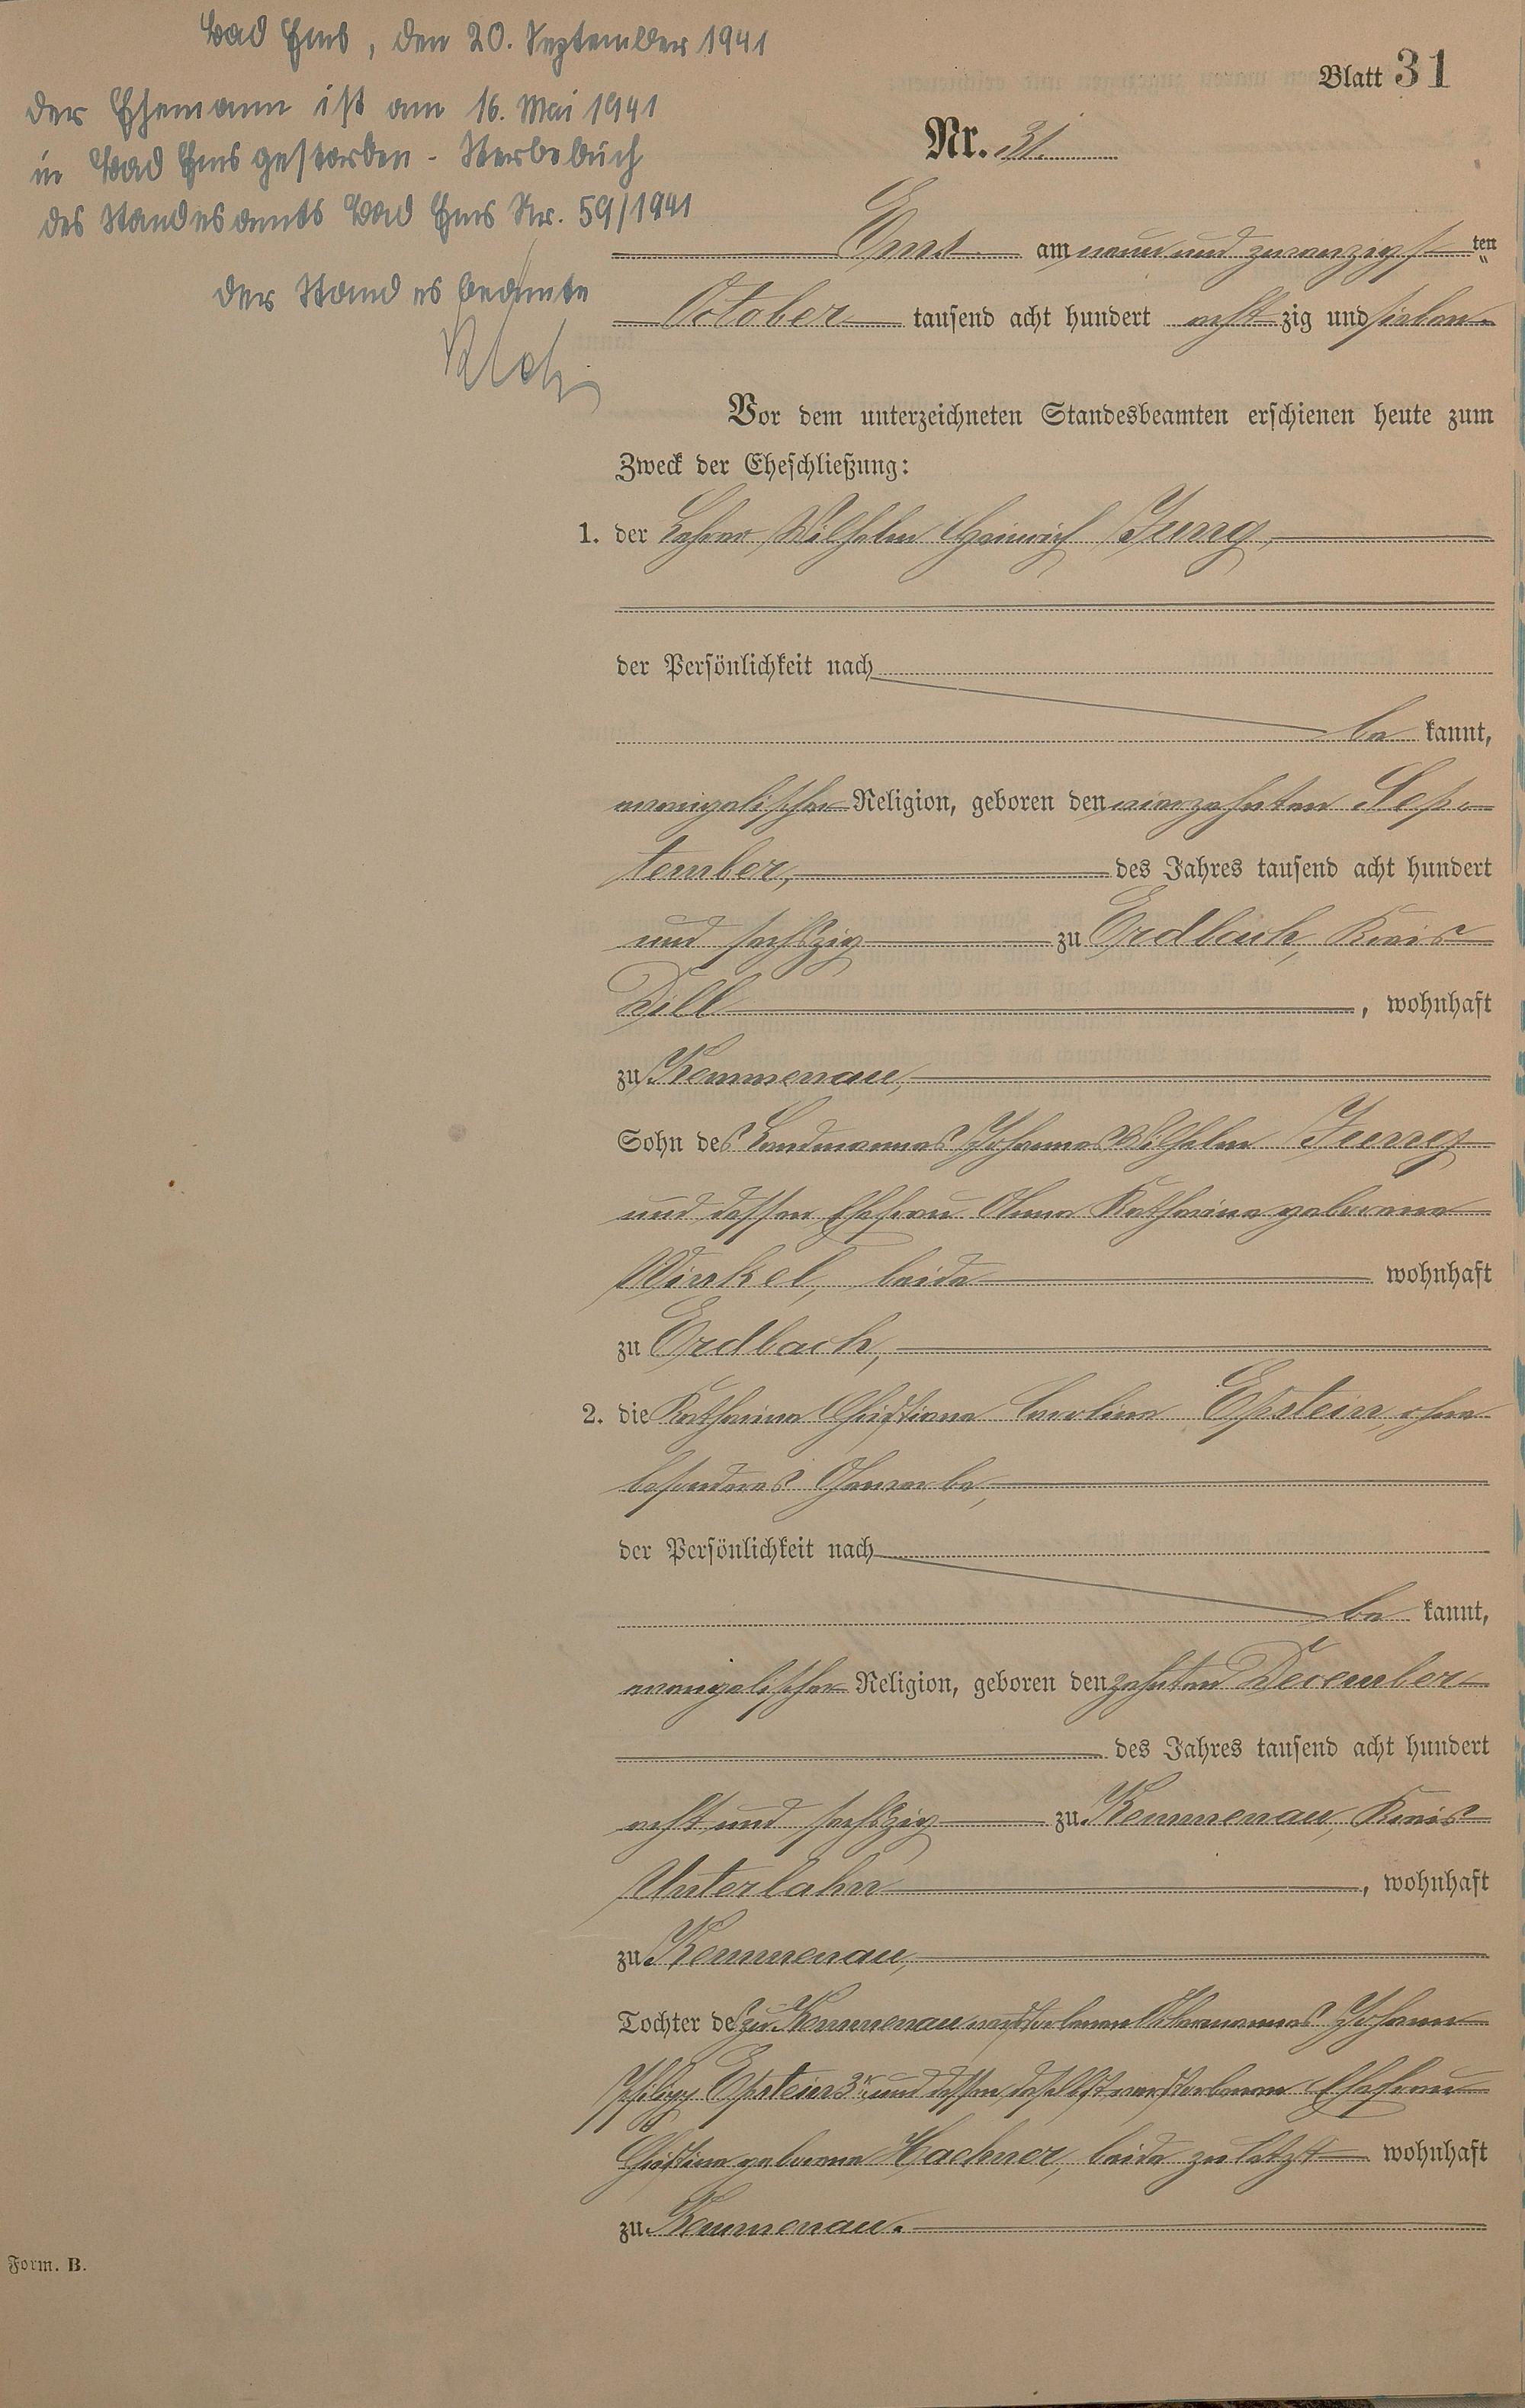 Bad Ems, den 20. September 1941
Der Ehemann ist am 16. Mai 1941
in Bad Ems gestorben - Sterbebuch
des Standesamts Bad Ems Nr. 59/1941
Der Standesbeamte
Blatt 31
Nr. 31.
Ems am neun und zwanzigsten
October tausend acht hundert achtzig und sieben.
Vor dem unterzeichneten Standesbeamten erschienen heute zum
Zweck der Eheschließung:
1. der Lehrer Wilhelm Heinrich Jung,
der Persönlichkeit nach
be kannt,
evangelischer Religion, geboren den vierzehnten Sep-
tember, des Jahres tausend acht hundert
und sechszig zu Erdbach, Kreis
Dill, wohnhaft
zu Kemmenau,
Sohn des Landmannes Johannes Wilhelm Jung
und dessen Ehefrau Anna Katharina geborene
Winkel, beide wohnhaft
zu Erdbach,
2. die Katharina Christiane Caroline Epstein, ohne
besonderes Gewerbe,
der Persönlichkeit nach
be kannt,
evangelischer Religion, geboren den zehnten December
des Jahres tausend acht hundert
acht und sechszig zu Kemmenau, Kreis
Unterlahn, wohnhaft
zu Kemmenau,
Tochter des zu Kemmenau verstorbenen Johann
Philipp Epstein 3r und dessen daselbst verstorbenen Ehefrau
Christine geborene Hachner, beide zuletzt wohnhaft
zu Kemmenau.
Form. B.